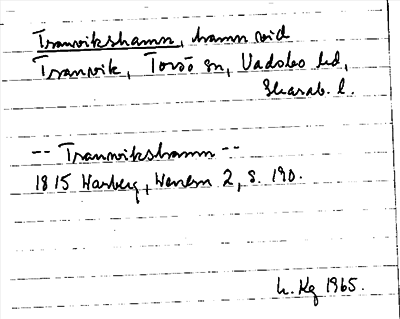 Tranvikshamn, hamn vid
Tranvik, Torsö sn, Vadsbo hd,
Skarab. l.
-- Tranvikshamn --
1815 Warberg, Wenern 2, s. 190.
L. Kg 1965.